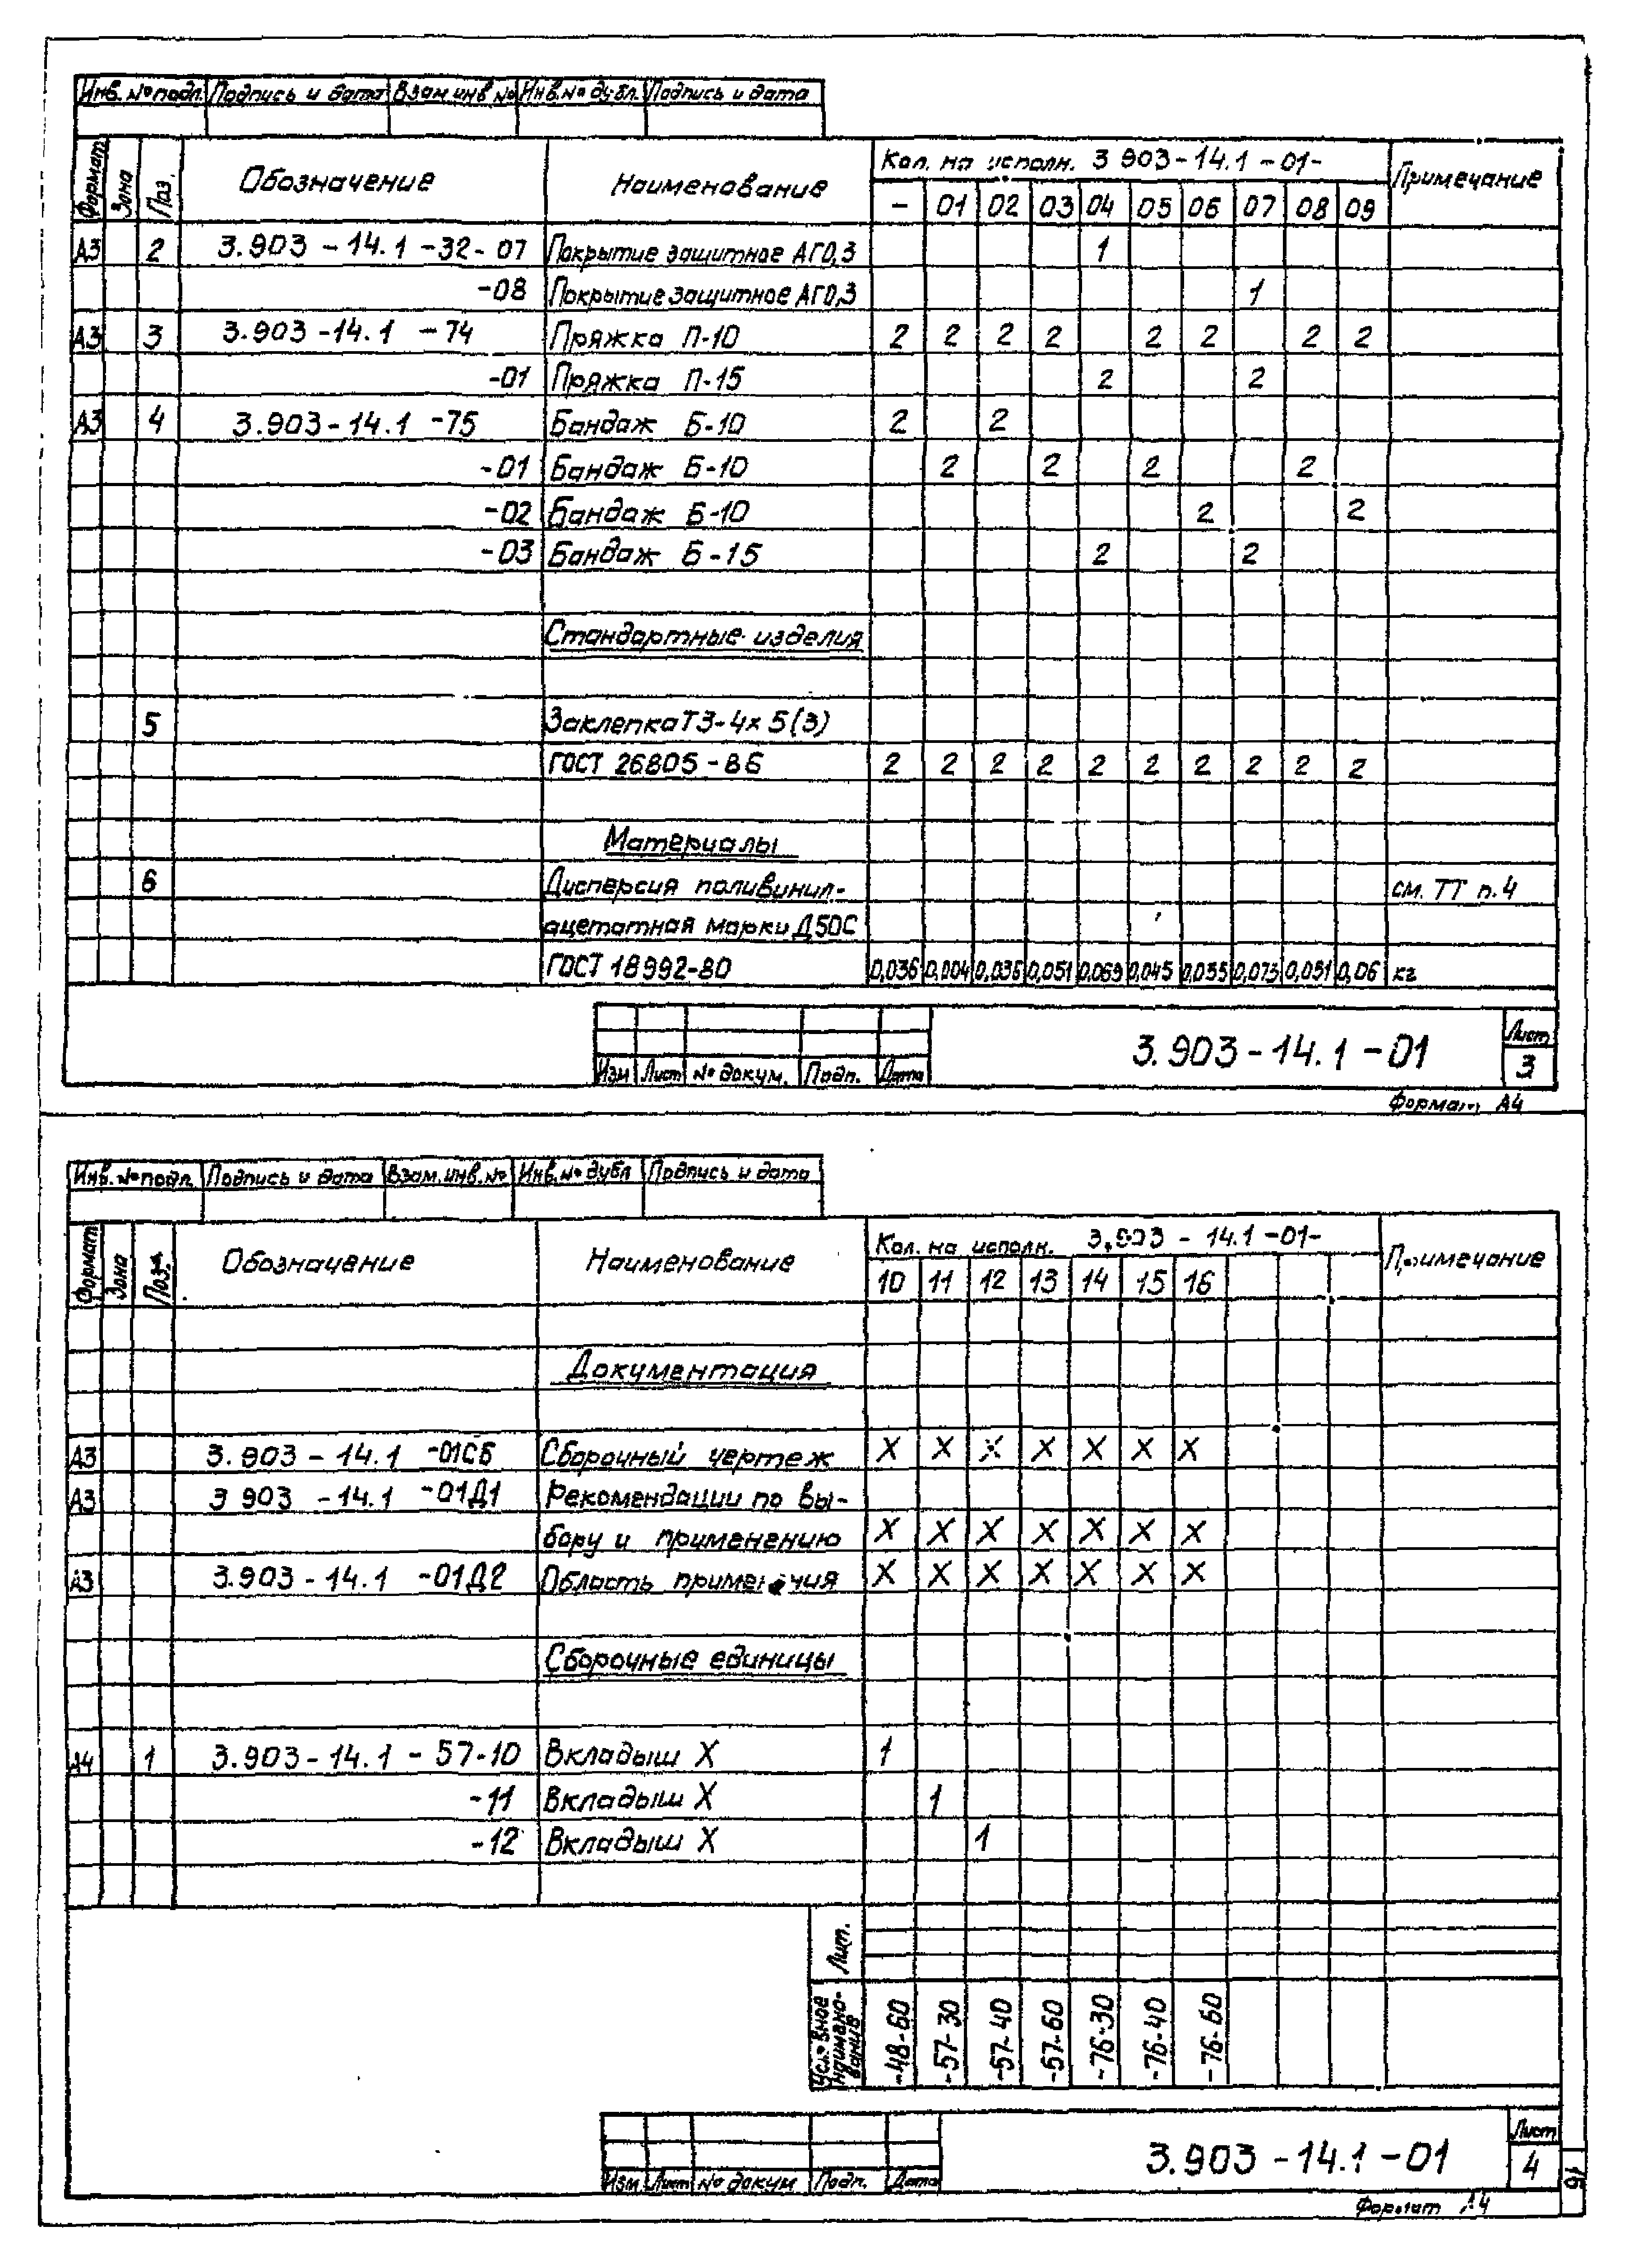 Инв. № подл. Подпись и дата Взам. инв № Инв. № дубл. Подпись и дата
Формат Зона Поз. Обозначение Наименование Кол. на исполн. 3 903-14.1-01- Примечание
- 01 02 03 04 05 06 07 08 09
А3 2 3.903-14.1-32-07 Покрытие защитное АГ0,3 1
-08 Покрытие защитное АГ0,3 1
А3 3 3.903-14.1-74 Пряжка П-10 2 2 2 2 2 2 2 2
-01 Пряжка П-15 2 2
А3 4 3.903-14.1-75 Бандаж Б-10 2 2
-01 Бандаж Б-10 2 2 2 2
-02 Бандаж Б-10 2 2
-03 Бандаж Б-15 2 2
Стандартные изделия
5 Заклепка Т3-4х5(3)
ГОСТ 26805-86 2 2 2 2 2 2 2 2 2 2
Материалы
6 Дисперсия поливинил- см. ТТ п.4
ацетатная марки Д50С
ГОСТ 18992-80 0,036 0,004 0,036 0,051 0,069 0,045 0,055 0,073 0,051 0,06 кг
3.903-14.1-01 Лист
Изм Лист № докум. Подп. Дата 3
Формат А4
Инв. № подл. Подпись и дата Взам. инв. № Инв. № дубл Подпись и дата
Формат Зона Поз. Обозначение Наименование Кол. на исполн. 3.903-14.1-01- Примечание
10 11 12 13 14 15 16
Документация
А3 3.903-14.1-01СБ Сборочный чертеж Х Х Х Х Х Х Х
А3 3 903-14.1-01Д1 Рекомендации по вы-
бору и применению Х Х Х Х Х Х Х
А3 3.903-14.1-01Д2 Область применения Х Х Х Х Х Х Х
Сборочные единицы
А4 1 3.903-14.1-57-10 Вкладыш Х 1
-11 Вкладыш Х 1
-12 Вкладыш Х 1
Лит.
Условное наименование -48-60 -57-30 -57-40 -57-60 -76-30 -76-40 -76-60
3.903-14.1-01 Лист
Изм Лист № докум Подп. Дата 4
Формат А4
16